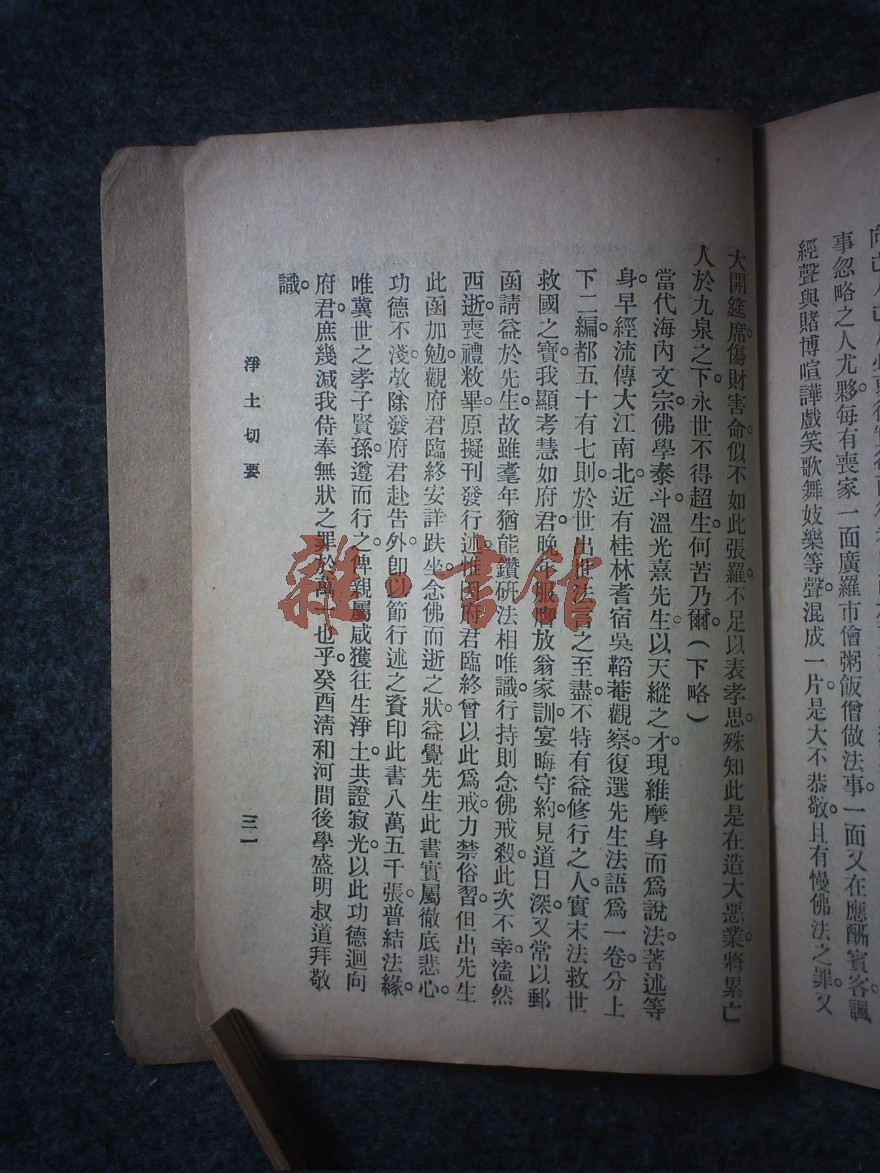 事忽略之人尤夥每有喪家一面廣羅市儈粥飯僧做法事。一面又在應酬賓客諷
經聲與賭博喧譁戲笑歌舞妓樂等聲混成一片。是大不恭敬。且有慢佛法之罪。又
大開筵席。傷財害命。似不如此張羅。不足以表孝思。殊知此是在造大惡業。將累亡
人於九泉之下。永世不得超生。何苦乃爾。(下略)
當代海內文宗。佛學泰斗。溫光熹先生。以天縱之才。現維摩身而爲說法。著述等
身。早經流傳大江南北。近有桂林耆宿吳韜菴觀察。復選先生法語爲一卷。分上
下二編。都五十有七則。於世出世法言之至盡。不特有益修行之人。實末法救世
救國之寶。我顯考慧如府君。晚年服膺放翁家訓。宴晦守約。見道日深。又常以郵
函請益於先生。故雖耄年猶能鑽研法相唯識。行持則念佛戒殺。此次不幸溘然
西逝。喪禮敉畢。原擬刊發行述。惟因府君臨終曾以此爲戒。力禁俗習。但出先生
此函加勉。觀府君臨終安詳趺坐念佛而逝之狀。益覺先生此書實屬徹底悲心。
功德不淺。故除發府君赴告外。卽以節行述之資印此書八萬五千張。普結法緣。
唯冀世之孝子賢孫。遵而行之。俾親屬咸獲往生淨土。共證寂光。以此功德迴向
府君。庶幾減我侍奉無狀之罪於萬一也乎。癸酉清和河間後學盛明叔道拜敬
識。
淨土切要
三一
雜·書館